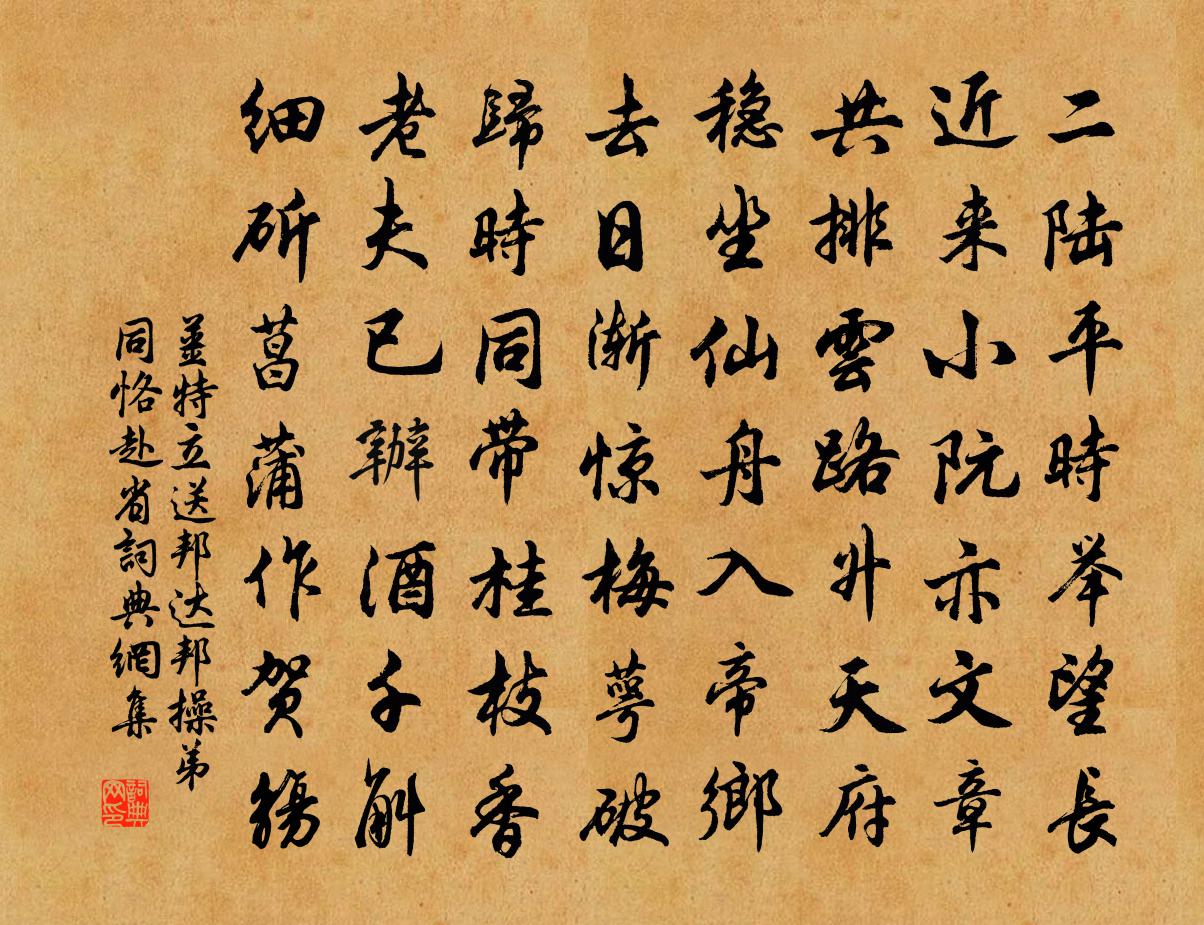 二陆平時举望長
近来小阮亦文章
共排雲路升天府
稳坐仙舟入帝鄉
去日渐惊梅萼破
歸時同带桂枝香
老夫已辦酒千斛
细斫菖蒲作贺觞
薑特立送邦达邦操弟
同恪赴省詞典網集
詞典網印